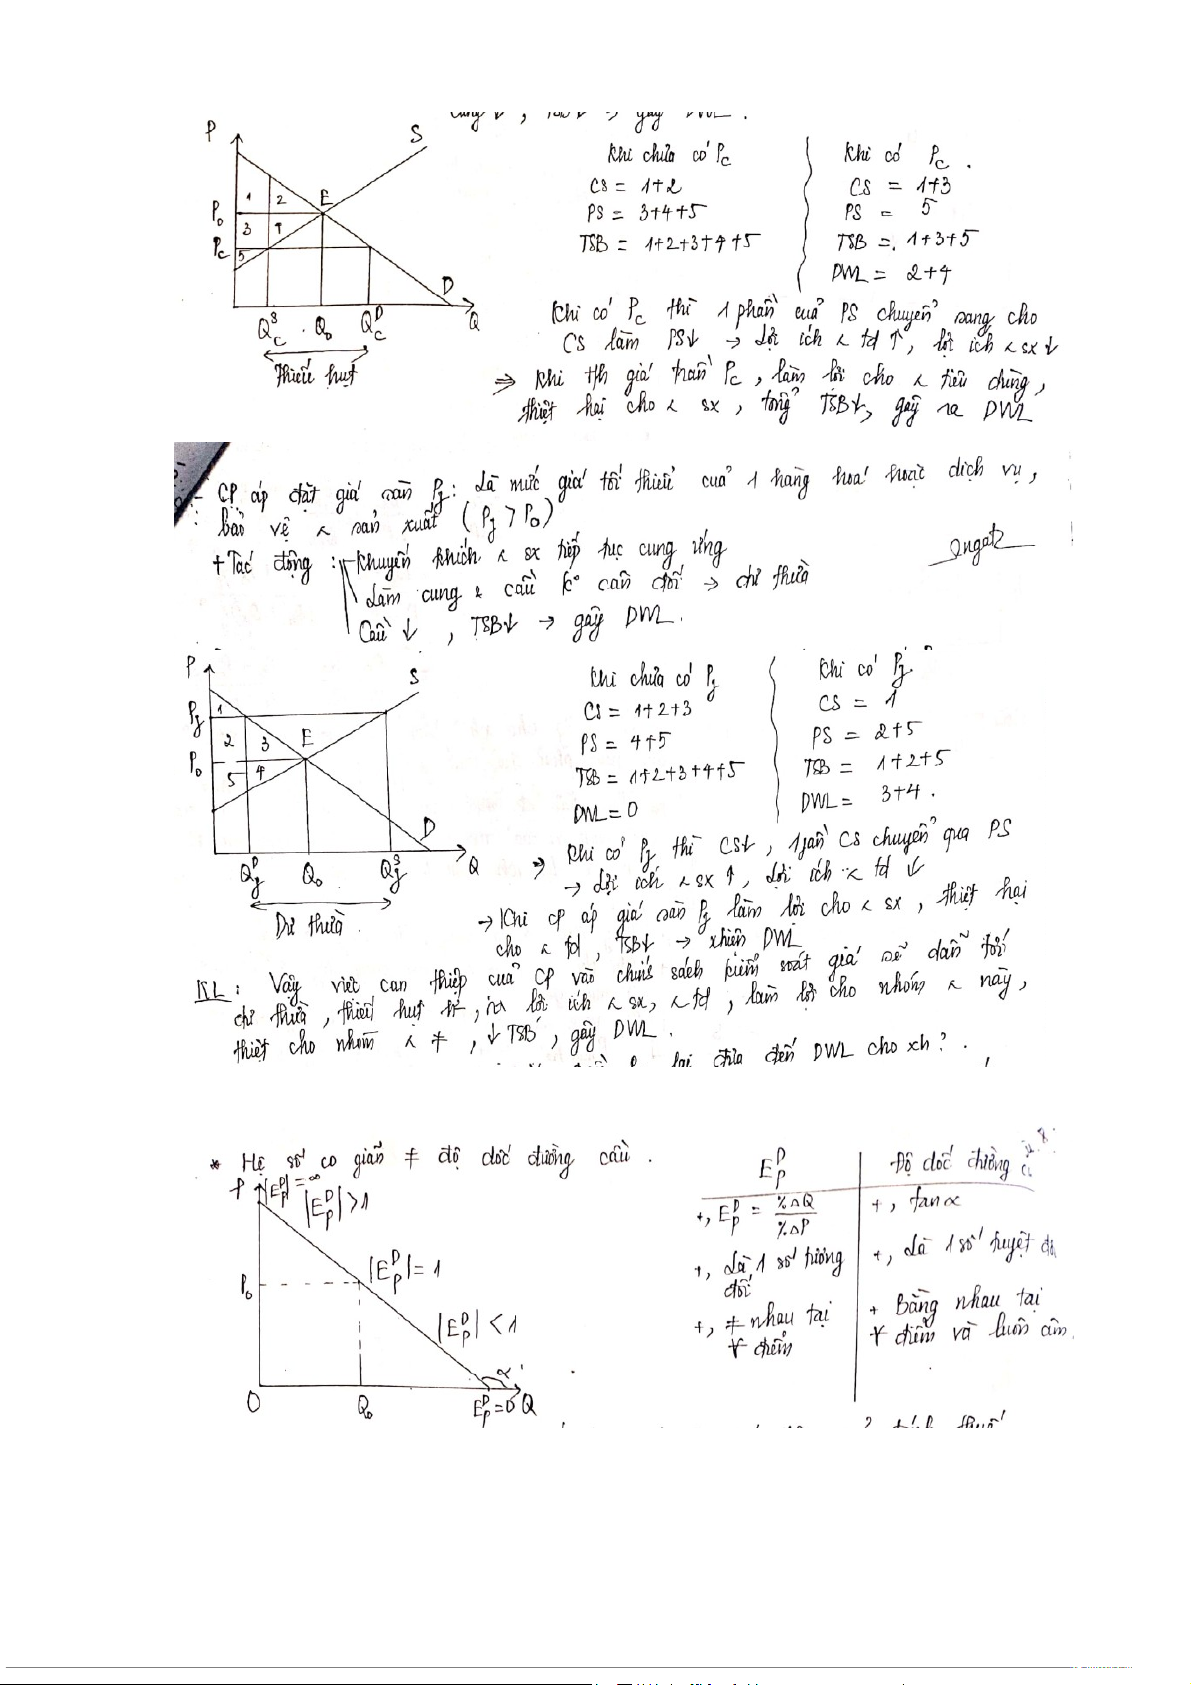 cung ↓, TSB ↓ → gây DWL.
P
S
1
2
E
P₀
3
4
P_c
5
D
Q_c^S
Q₀
Q_c^D
Q
Thiếu hụt
Khi chưa có P_c
CS = 1+2
PS = 3+4+5
TSB = 1+2+3+4+5
Khi có P_c.
CS = 1+3
PS = 5
TSB = 1+3+5
DWL = 2+4
Khi có P_c thì 1 phần của PS chuyển sang cho
CS làm PS↓ → Lợi ích < td ↑, lợi ích < sx ↓
⇒ Khi th giá trần P_c, làm lợi cho < tiêu dùng,
thiệt hại cho < sx, tổng TSB↓, gây ra DWL
- CP áp đặt giá sàn P_f: Là mức giá tối thiểu của 1 hàng hoá hoặc dịch vụ,
bảo vệ < sản xuất (P_f > P₀)
+ Tác động: - Khuyến khích < sx tiếp tục cung ứng
Làm cung & cầu k° cân đối → dư thừa
Cầu ↓, TSB↓ → gây DWL.
P
S
P_f
1
2
3
E
P₀
5
4
D
Q_f^D
Q₀
Q_f^S
Q
Dư thừa.
Khi chưa có P_f
CS = 1+2+3
PS = 4+5
TSB = 1+2+3+4+5
DWL = 0
Khi có P_f
CS = 1
PS = 2+5
TSB = 1+2+5
DWL = 3+4.
⇒ Khi có P_f thì CS↓, 1 CS chuyển qua PS
→ Lợi ích < sx ↑, Lợi ích < td ↓
→ Khi cp áp giá sàn P_f làm lợi cho < sx, thiệt hại
cho < td, TSB↓ → khiến DWL
KL: Vậy việc can thiệp của CP vào chính sách kiểm soát giá sẽ dẫn tới
dư thừa, thiếu hụt, lợi ích < sx, < td, làm lợi cho nhóm < này,
thiệt cho nhóm < ≠, ↓ TSB, gây DWL.
lại đưa đến DWL cho xh?.
* Hệ số co giãn ≠ độ dốc đường cầu.
P
|E_P^D| = ∞
|E_P^D| > 1
|E_P^D| = 1
P₀
|E_P^D| < 1
α
O
Q₀
E_P^D = 0
Q
E_P^D
Độ dốc đường
+, E_P^D = %ΔQ / %ΔP
+, tanα
+, Là 1 số tương
đối
+, Là 1 số tuyệt
+, ≠ nhau tại
∀ điểm
+ Bằng nhau tại
∀ điểm và luôn âm.